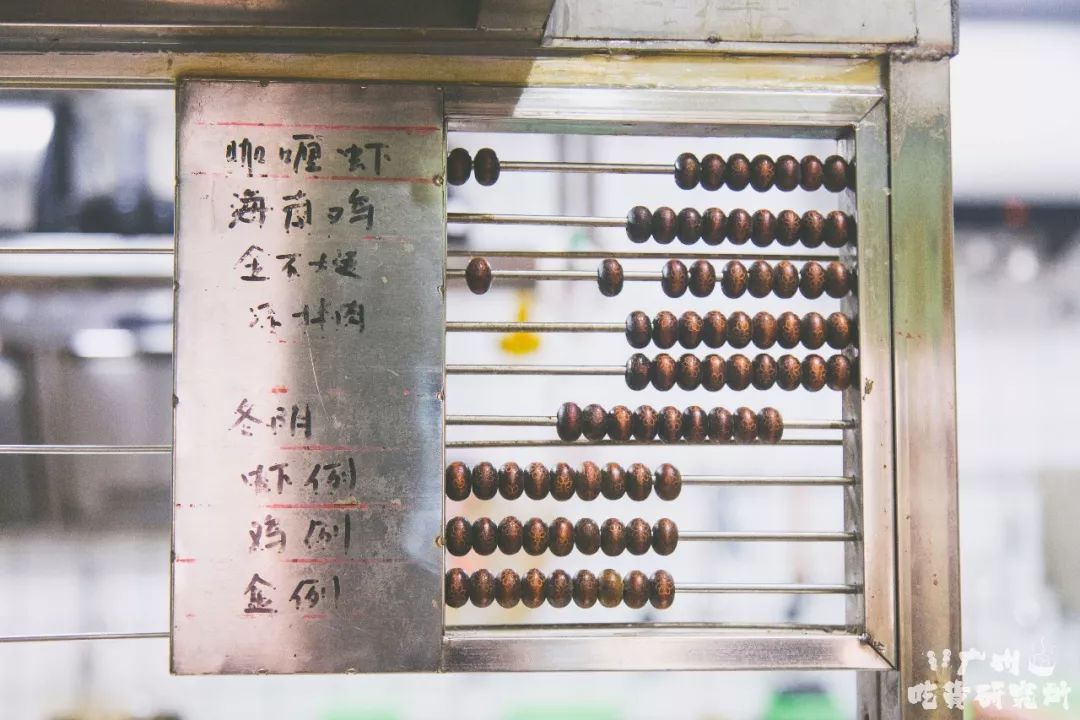 咖喱虾
海南鸡
金不
肉
冬阴
虾例
鸡例
金例
广州
吃货研究所